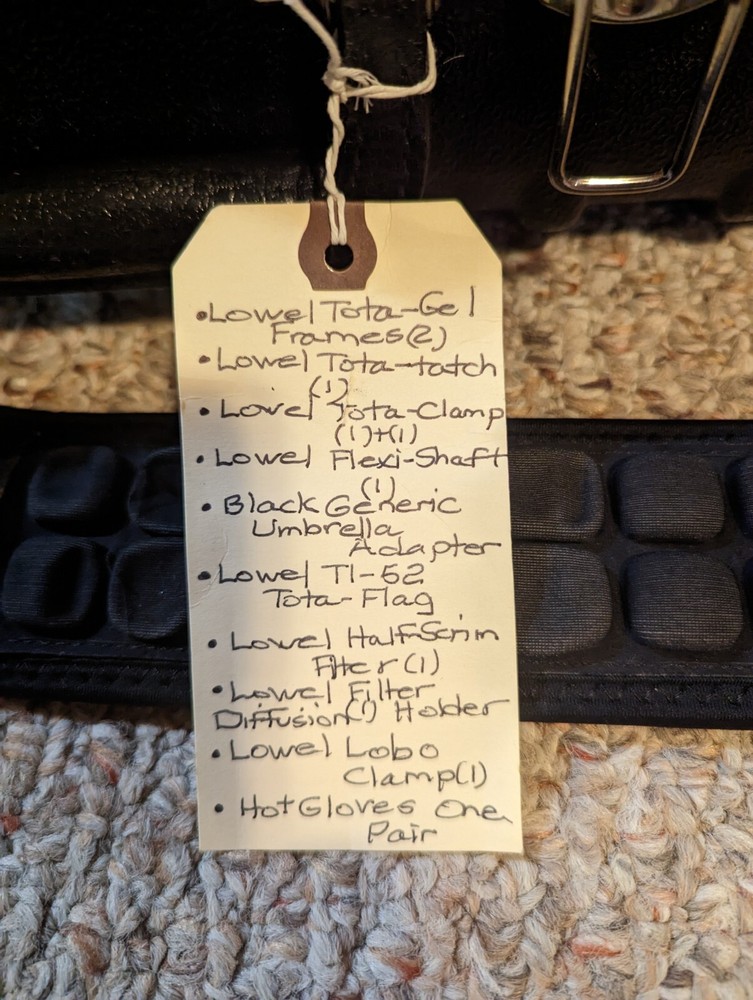 •Lowel Tota-Gel
Frames(2)
•Lowel Tota-tatch
(1)
•Lowel Tota-Clamp
(1)+(1)
•Lowel Flexi-Shaft
(1)
•Black Generic
Umbrella
Adapter
•Lowel T1-52
Tota-Flag
•Lowel Half-Scrim
Filter(1)
•Lowel Filter
Diffusion(1) Holder
•Lowel Lobo
Clamp(1)
•Hot Gloves One
Pair